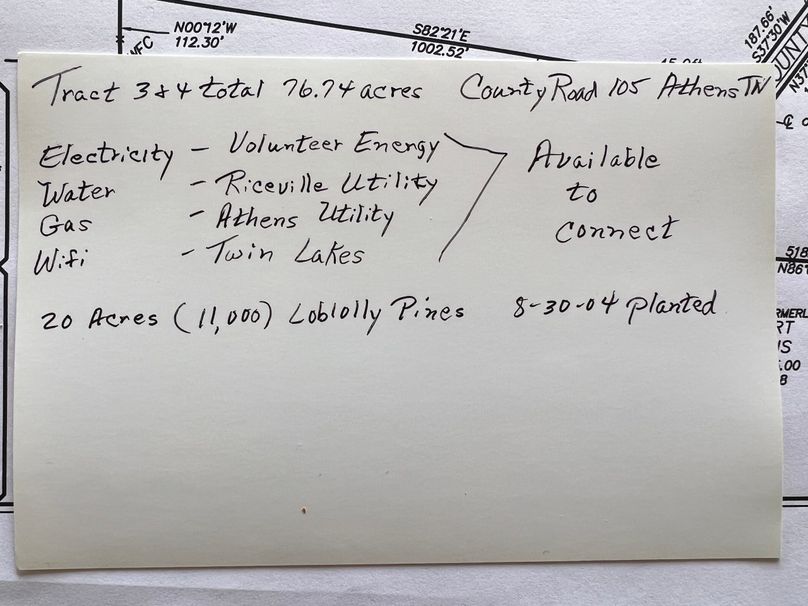 N00°12'W
112.30'
S82°21'E
1002.52'
187.66'
S37°30'W
Tract 3 & 4 total 76.74 acres County Road 105 Athens TN
Electricity - Volunteer Energy
Water - Riceville Utility
Gas - Athens Utility
Wifi - Twin Lakes
Available
to
connect
20 Acres (11,000) Loblolly Pines 8-30-04 planted